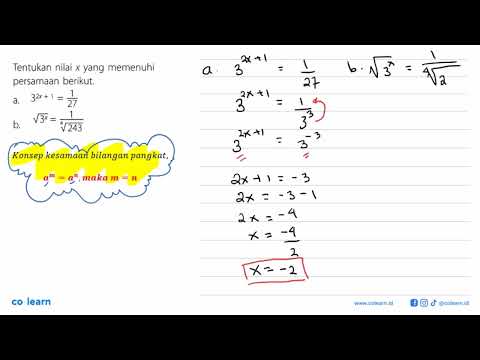 Tentukan nilai x yang memenuhi
persamaan berikut.
a. 3^{2x + 1} = 1/27
b. √3ˣ = 1/⁴√243
Konsep kesamaan bilangan pangkat,
aᵐ = aⁿ, maka m = n
a. 3^{2x+1} = 1/27
3^{2x+1} = 1/3³
3^{2x+1} = 3⁻³
2x+1 = -3
2x = -3 -1
2x = -4
x = -4/2
x = -2
b. √3ˣ = 1/⁴√2
co learn
www.colearn.id
@colearn.id